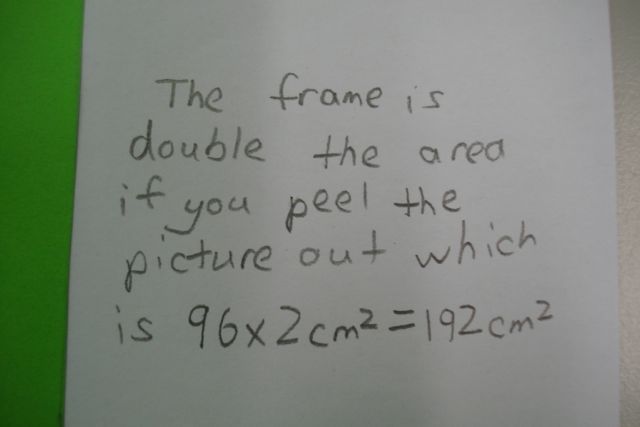 The frame is
double the area
if you peel the
picture out which
is 96x2cm²=192cm²